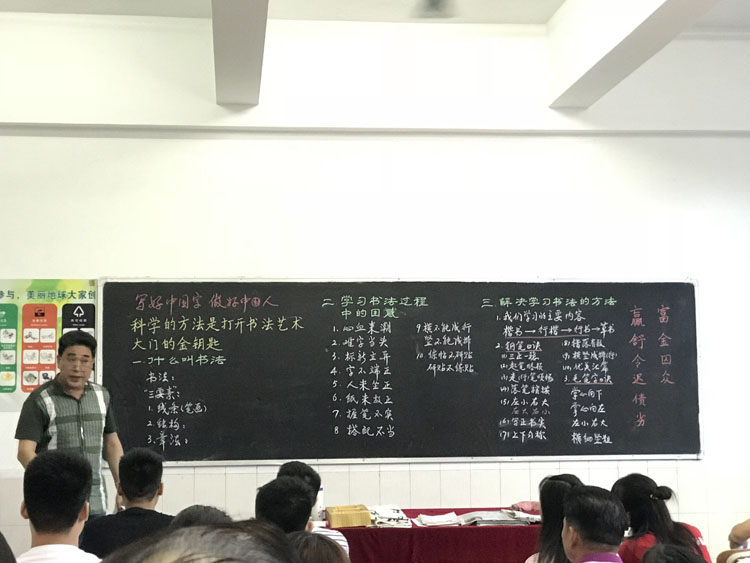 参与，美丽地球大家创
写好中国字 做好中国人
科学的方法是打开书法艺术
大门的金钥匙
一、什么叫书法
书法：
三要素：
1. 线条(笔画)
2. 结构：
3. 章法：
二、学习书法过程
中的困惑
1. 心血来潮
2. 难字当头
3. 标新立异
4. 字不端正
5. 人未坐正
6. 纸未放正
7. 握笔不实
8. 搭配不当
9 横不能成行
竖不能成排
10 练帖不研帖
研帖不练帖
三、解决学习书法的方法
1. 我们学习的主要内容
楷书→行楷→行书→草书
2. 钢笔口诀
(1) 三正一稳
(2) 起笔略顿
(4) 落笔轻摸
(5) 左小右大
右大左小
(6) 写正放实
(7) 上下匀称
3. 毛笔字口诀
掌心向下
掌心向左
左小右大
横细竖粗
富金因众
赢舒令迟债劣